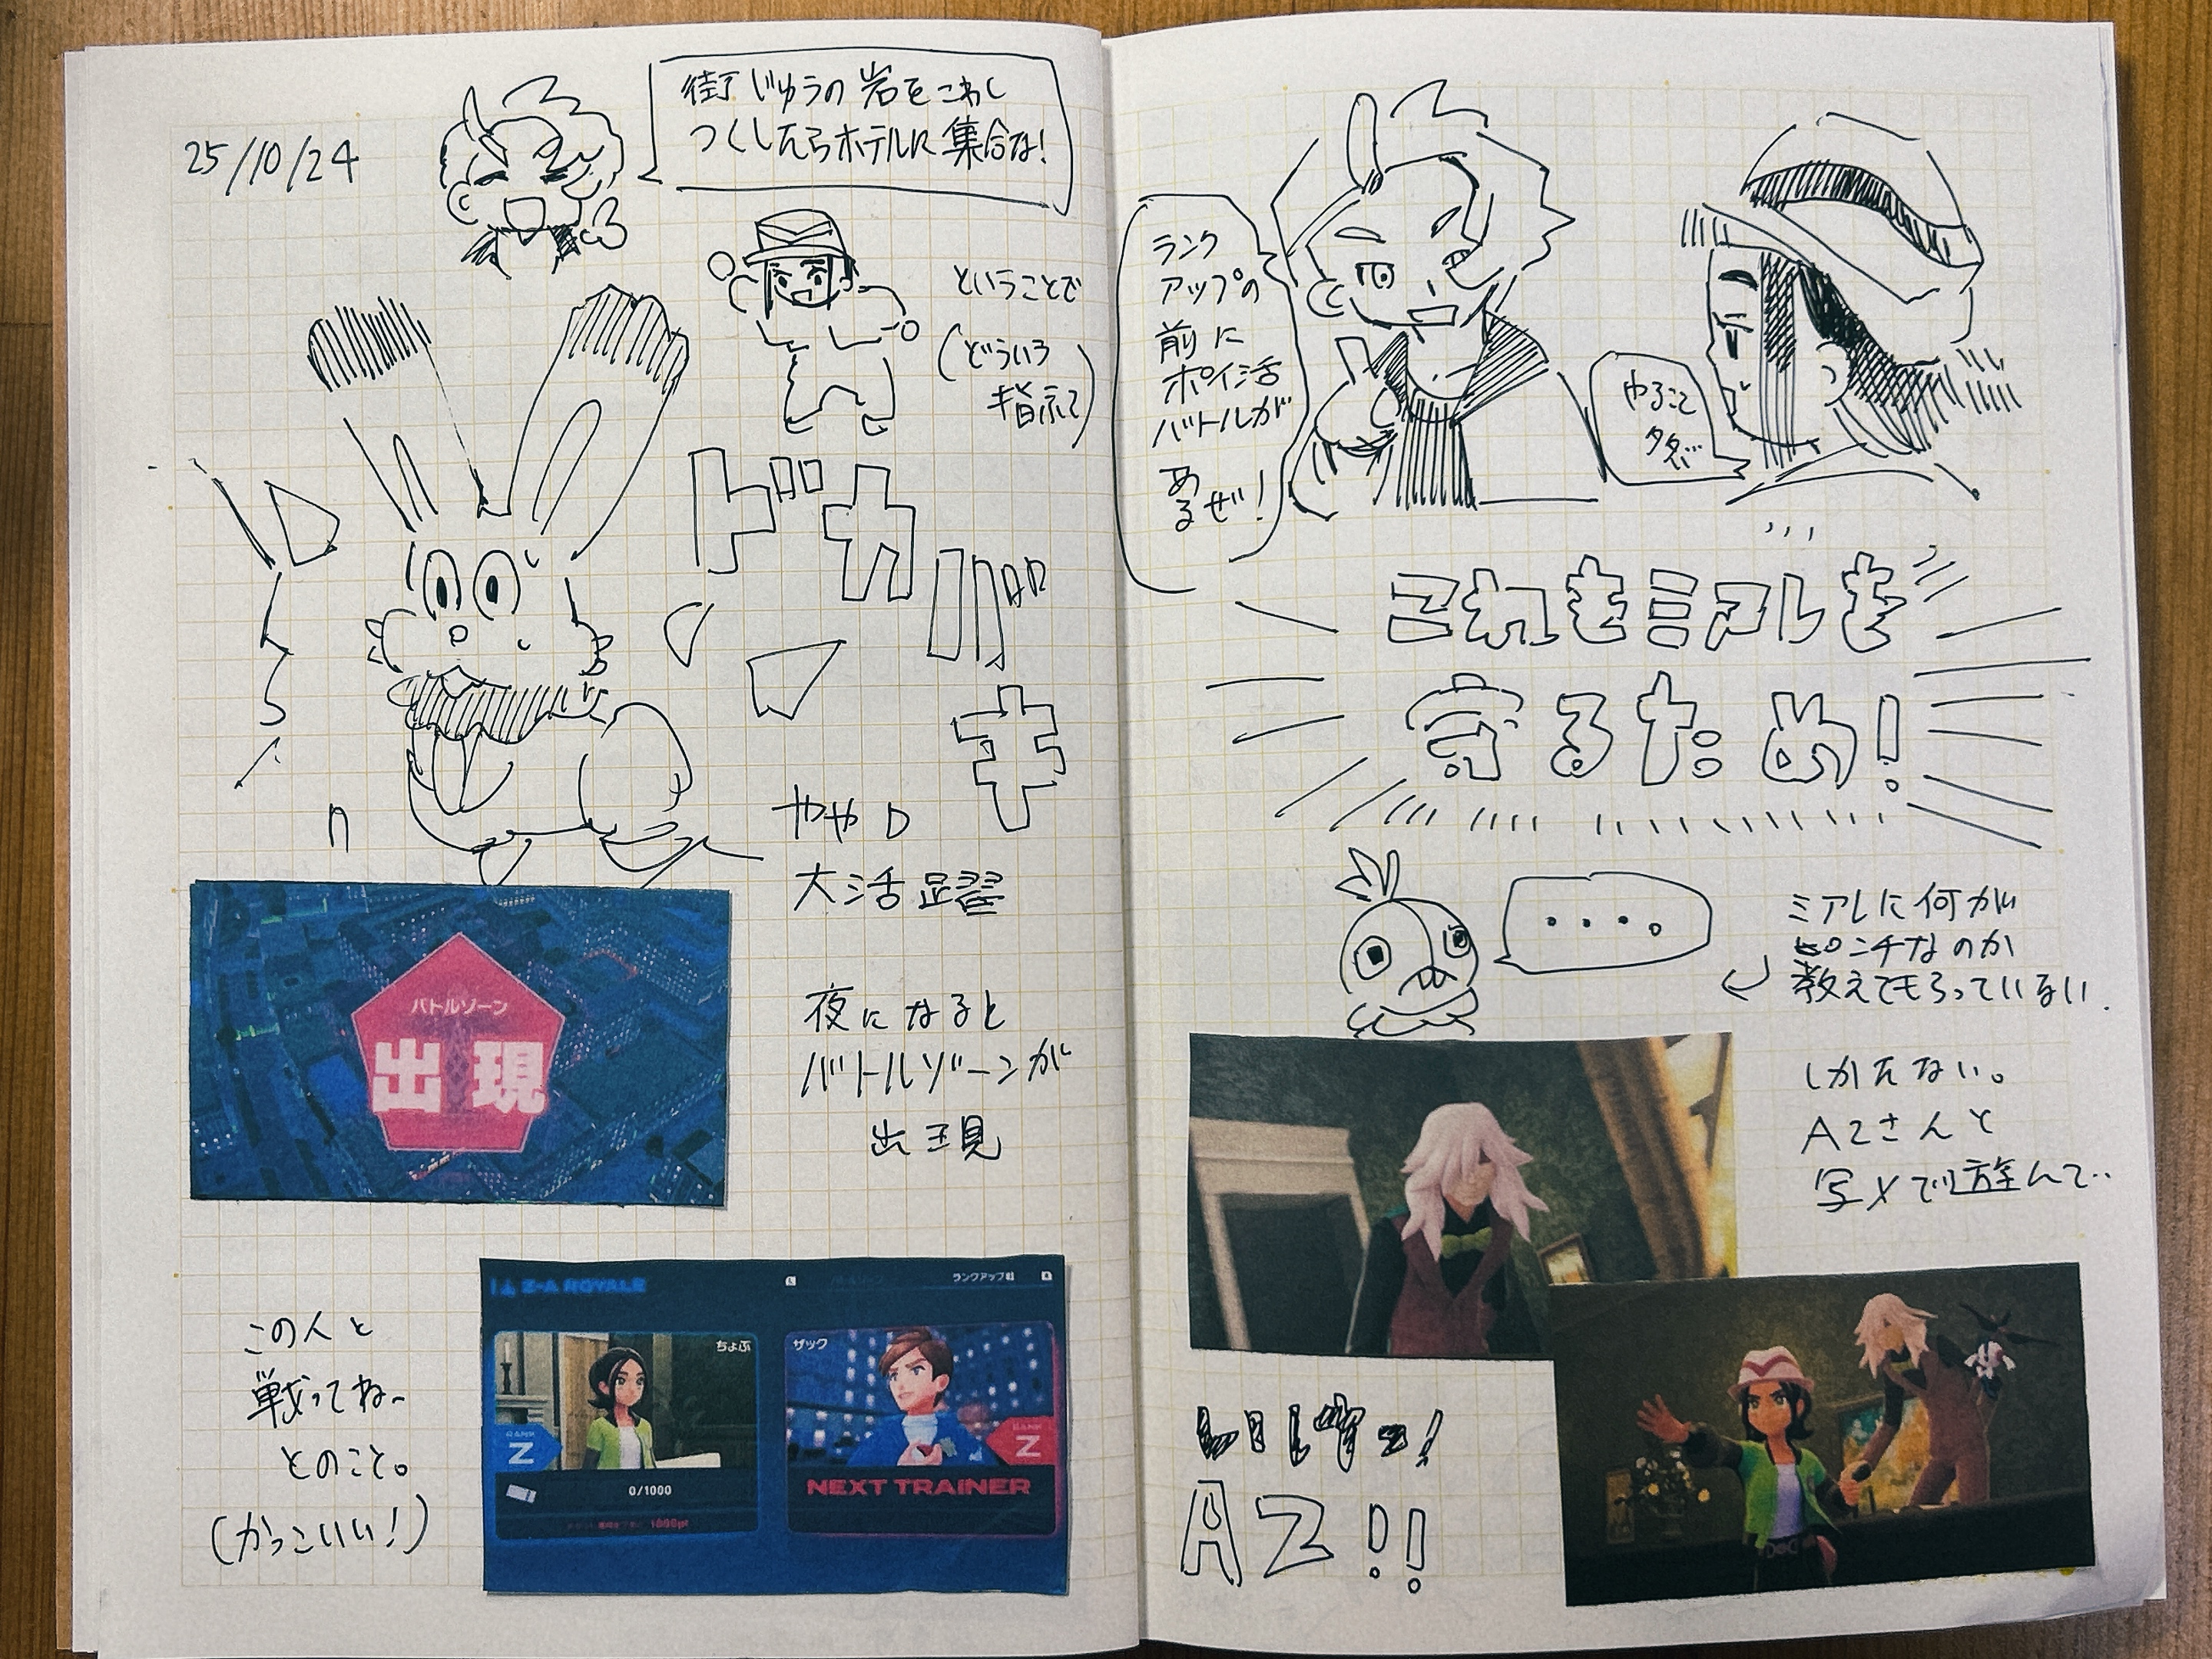 25/10/24
街じゅうの岩をこわし
つくしたらホテルに集合な!
ということで
(どういう
指示て)
ドカ
バキ
ややD
大活躍
バトルゾーン
出現
夜になると
バトルゾーンが
出現
この人と
戦ってね〜
とのこと。
(かっこいい!)
Z-A ROYALE
ランクアップ戦
ちょぷ
RANK
Z
0/1000
ザック
RANK
Z
NEXT TRAINER
ランク
アップの
前に
ポイ活
バトルが
あ
るぜ!
やること
タタﾞ
これもミアレを
守るため!
・・・。
ミアレに何が
ピンチなのか
教えてもらっていない.
しかたない。
AZさんと
写メで遊んで..
AZ!!